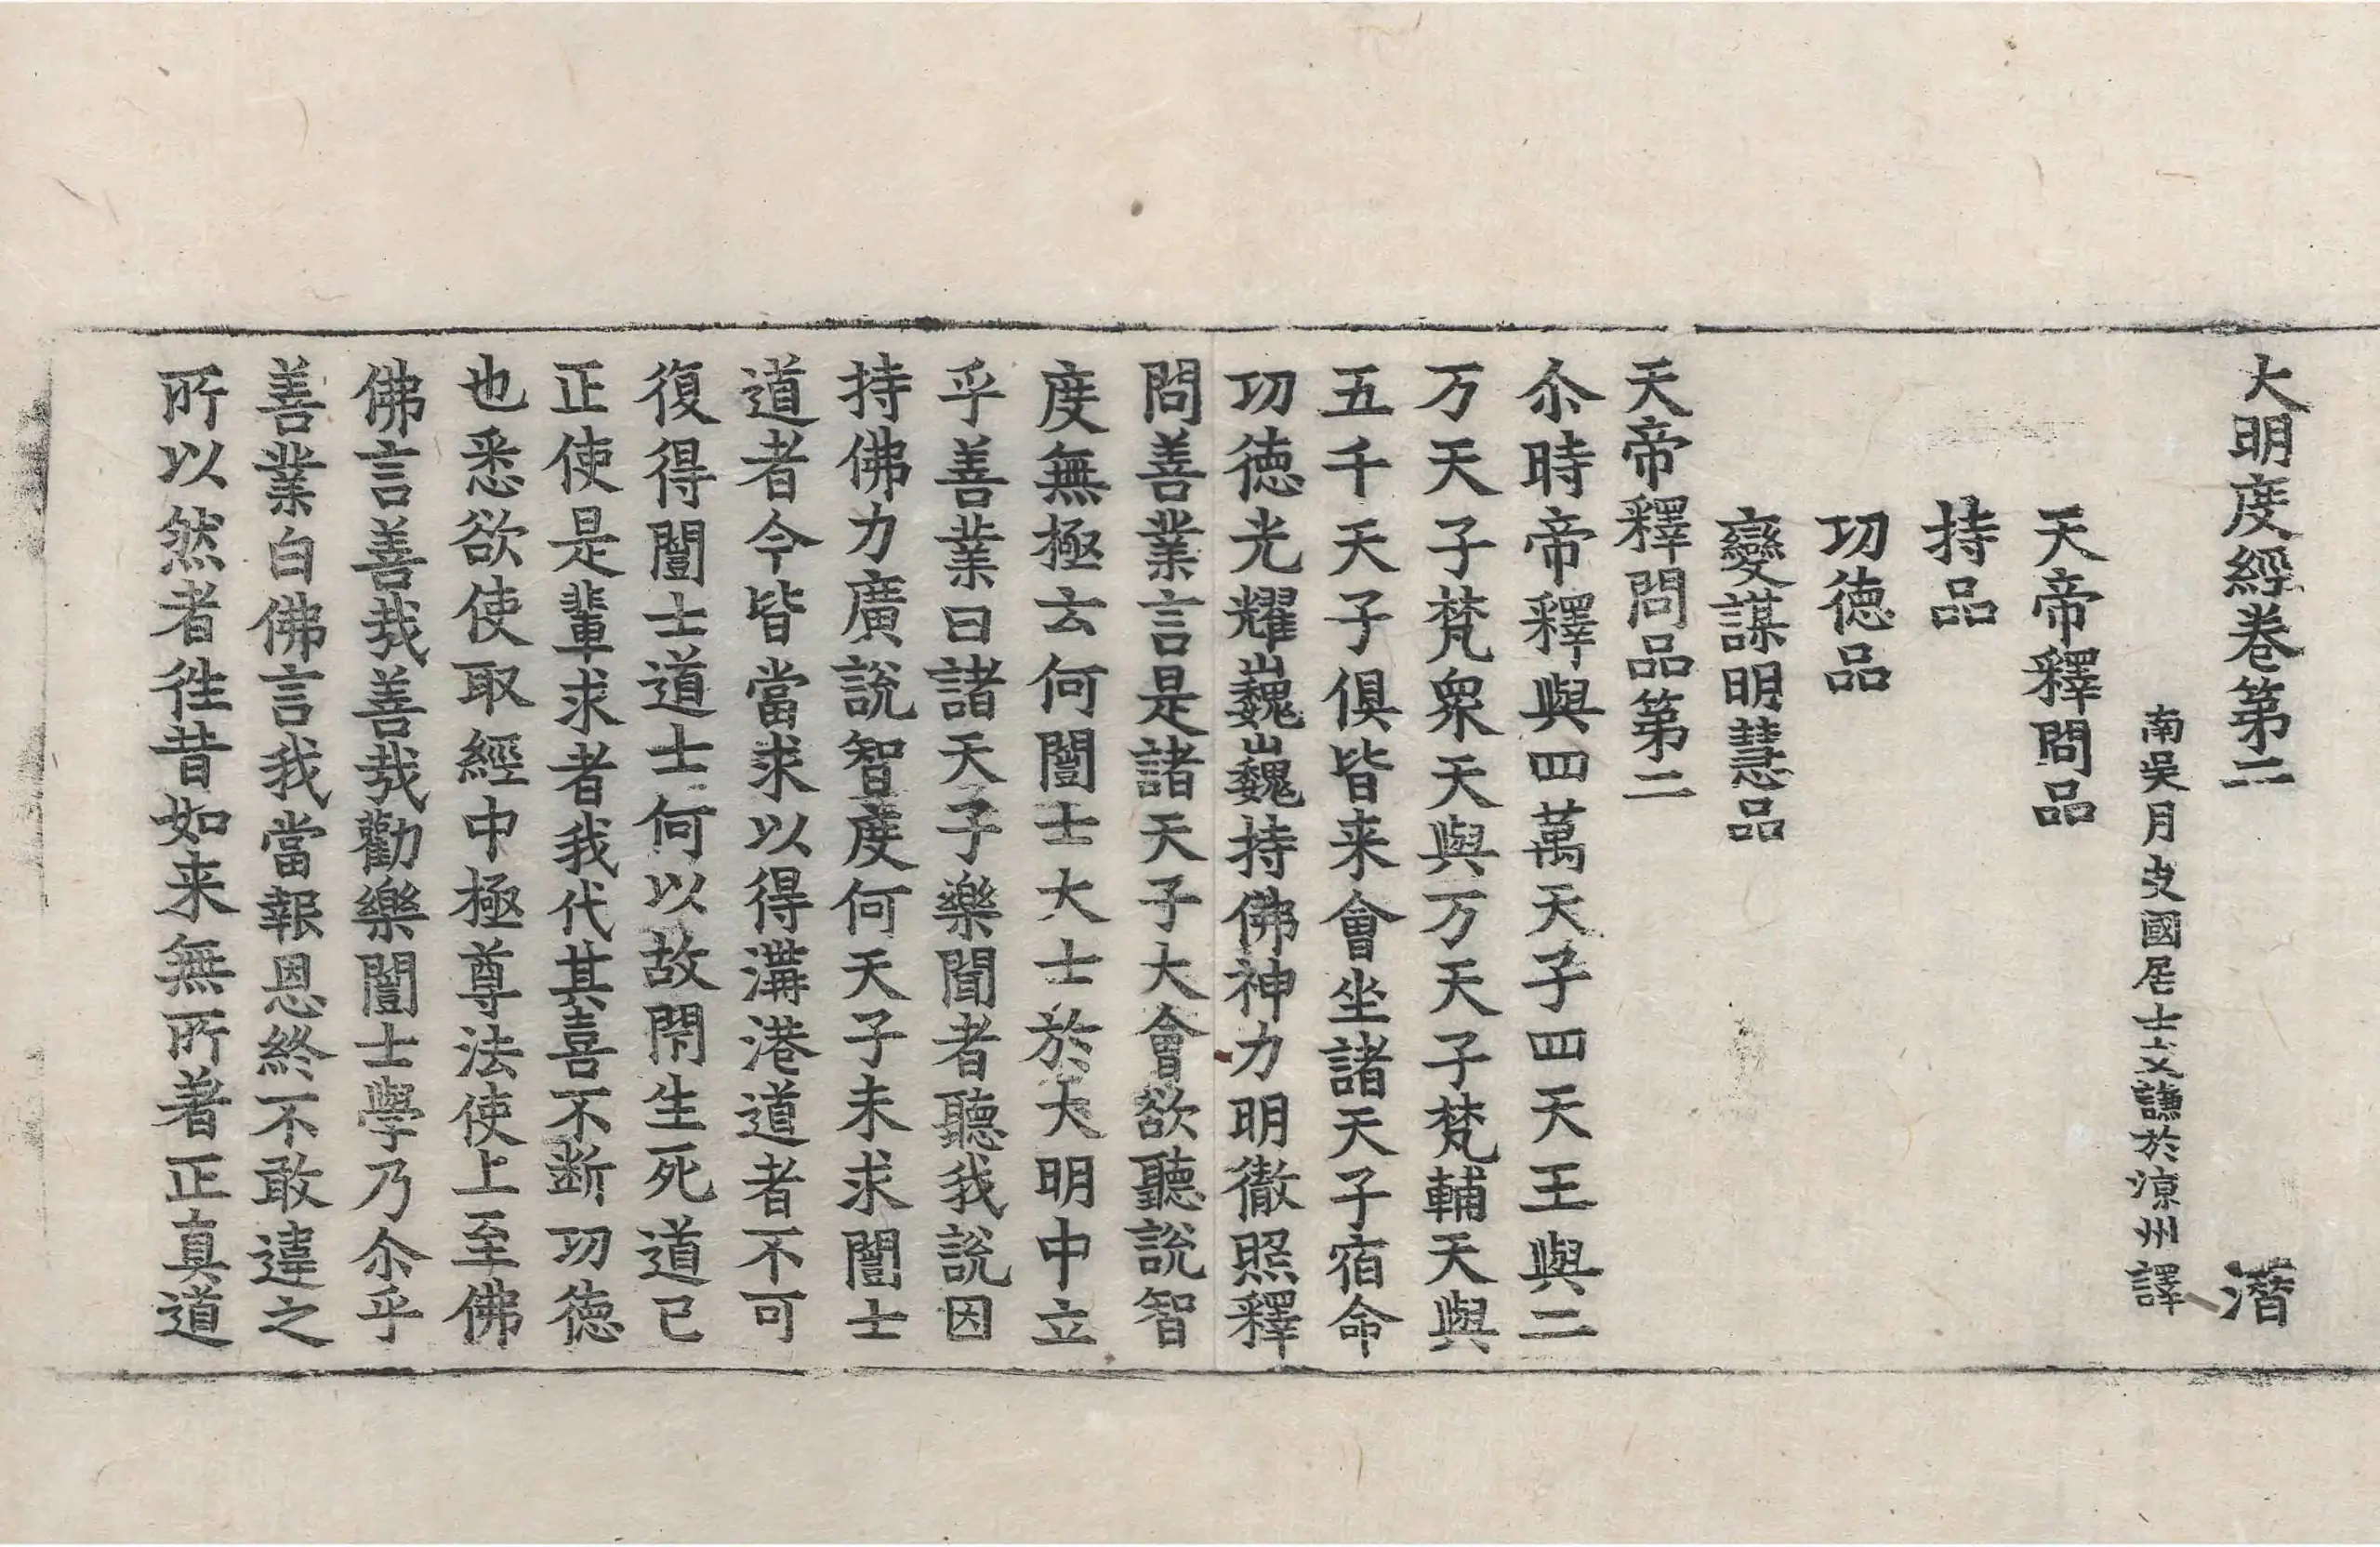 大明度經卷第二 潛
南吳月支國居士支謙於涼州譯
天帝釋問品
持品
功德品
變謀明慧品
天帝釋問品第二
尒時帝釋與四萬天子四天王與二
万天子梵衆天與万天子梵輔天與
五千天子俱皆来會坐諸天子宿命
功德光耀巍巍持佛神力明徹照釋
問善業言是諸天子大會欲聽說智
度無極云何闓士大士於大明中立
乎善業曰諸天子樂聞者聽我說因
持佛力廣說智度何天子未求闓士
道者今皆當求以得溝港道者不可
復得闓士道士何以故閇生死道已
正使是輩求者我代其喜不断功德
也悉欲使取經中極尊法使上至佛
佛言善哉善哉勸樂闓士學乃尒乎
善業白佛言我當報恩終不敢違之
所以然者徃昔如来無所著正真道